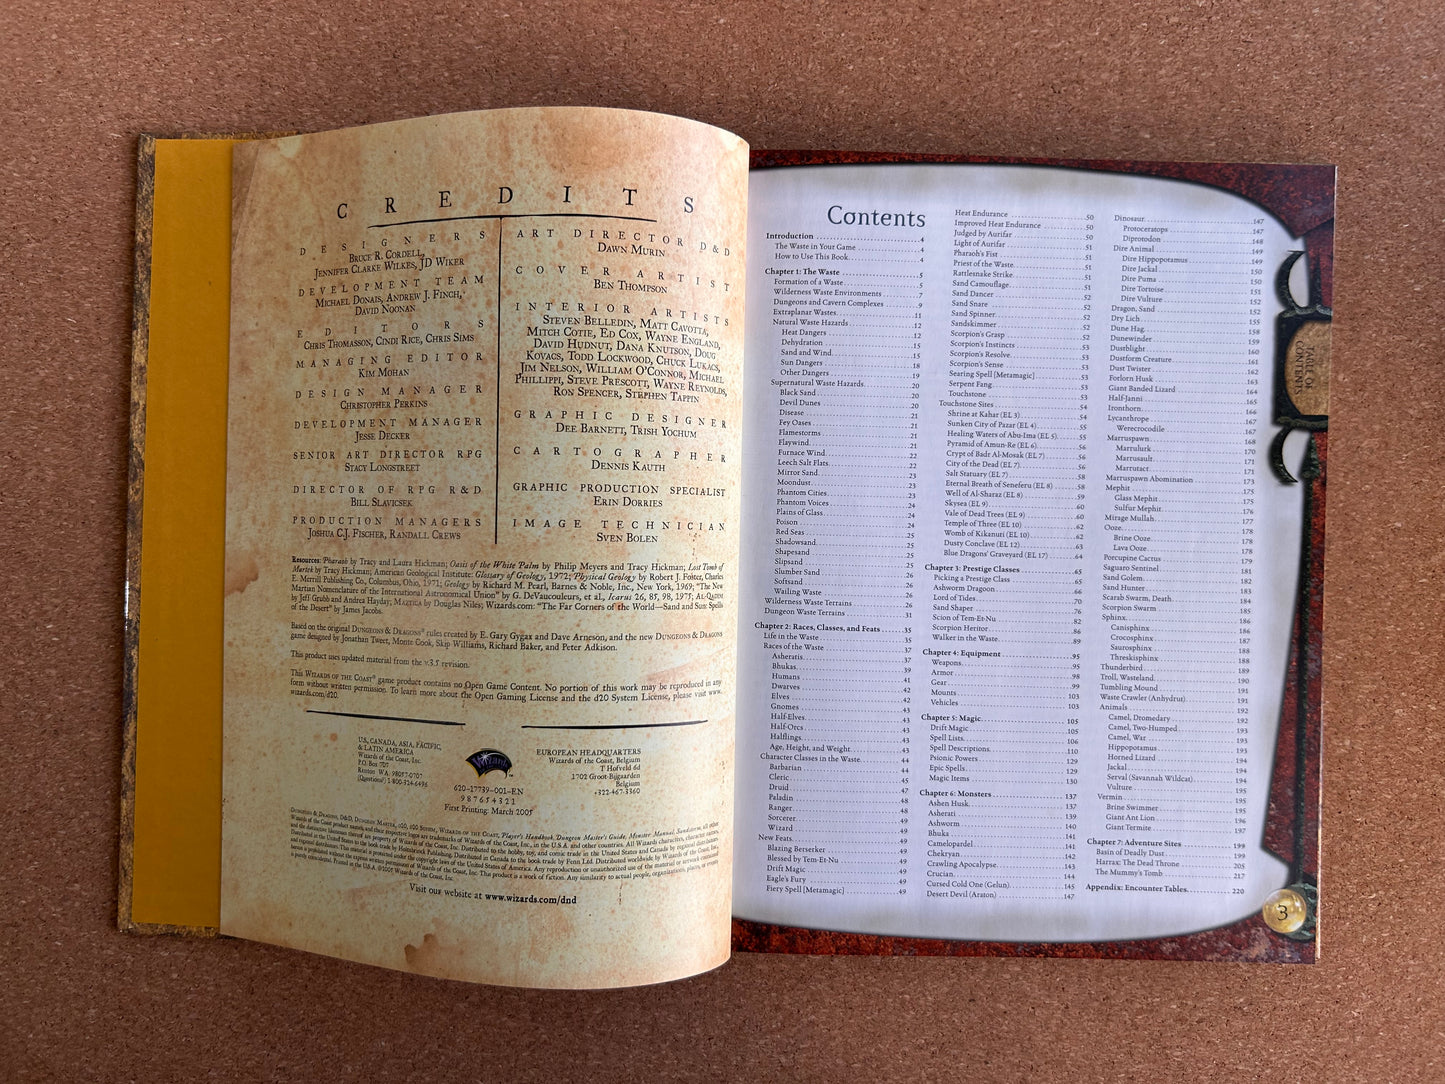 CREDITS
DESIGNERS
Bruce R. Cordell,
Jennifer Clarke Wilkes, JD Wiker
DEVELOPMENT TEAM
Michael Donais, Andrew J. Finch,
David Noonan
EDITORS
Chris Thomasson, Cindi Rice, Chris Sims
MANAGING EDITOR
Kim Mohan
DESIGN MANAGER
Christopher Perkins
DEVELOPMENT MANAGER
Jesse Decker
SENIOR ART DIRECTOR RPG
Stacy Longstreet
DIRECTOR OF RPG R&D
Bill Slavicsek
PRODUCTION MANAGERS
Joshua C.J. Fischer, Randall Crews
ART DIRECTOR D&D
Dawn Murin
COVER ARTIST
Ben Thompson
INTERIOR ARTISTS
Steven Belledin, Matt Cavotta,
Mitch Cotie, Ed Cox, Wayne England,
David Hudnut, Dana Knutson, Doug
Kovacs, Todd Lockwood, Chuck Lukacs,
Jim Nelson, William O'Connor, Michael
Phillippi, Steve Prescott, Wayne Reynolds,
Ron Spencer, Stephen Tappin
GRAPHIC DESIGNER
Dee Barnett, Trish Yochum
CARTOGRAPHER
Dennis Kauth
GRAPHIC PRODUCTION SPECIALIST
Erin Dorries
IMAGE TECHNICIAN
Sven Bolen
Resources: Pharaoh by Tracy and Laura Hickman; Oasis of the White Palm by Philip Meyers and Tracy Hickman; Lost Tomb of
Martek by Tracy Hickman; American Geological Institute: Glossary of Geology, 1972; Physical Geology by Robert J. Foster, Charles
E. Merrill Publishing Co., Columbus, Ohio, 1971; Geology by Richard M. Pearl, Barnes & Noble, Inc., New York, 1969; "The New
Martian Nomenclature of the International Astronomical Union" by G. DeVaucouleurs, et al., Icarus 26, 85, 98, 1975; Al-Qadim
by Jeff Grubb and Andrea Hayday; Maztica by Douglas Niles; Wizards.com: "The Far Corners of the World—Sand and Sun: Spells
of the Desert" by James Jacobs.
Based on the original Dungeons & Dragons® rules created by E. Gary Gygax and Dave Arneson, and the new Dungeons & Dragons
game designed by Jonathan Tweet, Monte Cook, Skip Williams, Richard Baker, and Peter Adkison.
This product uses updated material from the v.3.5 revision.
This Wizards of the Coast® game product contains no Open Game Content. No portion of this work may be reproduced in any
form without written permission. To learn more about the Open Gaming License and the d20 System License, please visit www.
wizards.com/d20.
U.S., CANADA, ASIA, PACIFIC,
& LATIN AMERICA
Wizards of the Coast, Inc.
P.O. Box 707
Renton WA 98057-0707
(Questions?) 1-800-324-6496
Wizards
620-17739-001-EN
9 8 7 6 5 4 3 2 1
First Printing: March 2005
EUROPEAN HEADQUARTERS
Wizards of the Coast, Belgium
T Hofveld 6d
1702 Groot-Bijgaarden
Belgium
+322-467-3360
Visit our website at www.wizards.com/dnd
Contents
Introduction 4
The Waste in Your Game 4
How to Use This Book 4
Chapter 1: The Waste 5
Formation of a Waste 5
Wilderness Waste Environments 7
Dungeons and Cavern Complexes 9
Extraplanar Wastes 11
Natural Waste Hazards 12
Heat Dangers 12
Dehydration 15
Sand and Wind 15
Sun Dangers 18
Other Dangers 19
Supernatural Waste Hazards 20
Black Sand 20
Devil Dunes 20
Disease 21
Fey Oases 21
Flamestorms 21
Flaywind 21
Furnace Wind 22
Leech Salt Flats 22
Mirror Sand 22
Moondust 23
Phantom Cities 23
Phantom Voices 23
Plains of Glass 24
Poison 24
Red Seas 24
Shadowsand 25
Shapesand 25
Slipsand 25
Slumber Sand 26
Softsand 26
Wailing Waste 26
Wilderness Waste Terrains 26
Dungeon Waste Terrains 31
Chapter 2: Races, Classes, and Feats 35
Life in the Waste 37
Races of the Waste 37
Asheratis 37
Bhukas 39
Humans 41
Dwarves 42
Elves 42
Gnomes 43
Half-Elves 43
Half-Orcs 43
Halflings 43
Age, Height, and Weight 43
Character Classes in the Waste 44
Barbarian 44
Cleric 45
Druid 47
Paladin 48
Ranger 48
Sorcerer 49
Wizard 49
New Feats 49
Blazing Berserker 49
Blessed by Tem-Et-Nu 49
Drift Magic 49
Eagle's Fury 49
Fiery Spell [Metamagic] 49
Heat Endurance 50
Improved Heat Endurance 50
Judged by Aurifar 50
Light of Aurifar 51
Pharaoh's Fist 51
Priest of the Waste 51
Rattlesnake Strike 51
Sand Camouflage 51
Sand Dancer 52
Sand Snare 52
Sand Spinner 52
Sandskimmer 52
Scorpion's Grasp 52
Scorpion's Instincts 53
Scorpion's Resolve 53
Scorpion's Sense 53
Searing Spell [Metamagic] 53
Serpent Fang 53
Touchstone 53
Touchstone Sites 54
Shrine at Kahar (EL 3) 54
Sunken City of Pazar (EL 4) 55
Healing Waters of Abu-Ima (EL 5) 55
Pyramid of Amun-Re (EL 6) 56
Crypt of Badr Al-Mosak (EL 7) 56
City of the Dead (EL 7) 56
Salt Statuary (EL 7) 57
Eternal Breath of Seneferu (EL 8) 58
Well of Al-Sharaz (EL 8) 59
Skysea (EL 9) 60
Vale of Dead Trees (EL 9) 60
Temple of Three (EL 10) 62
Womb of Kikanuti (EL 10) 62
Dusty Conclave (EL 12) 63
Blue Dragons' Graveyard (EL 17) 64
Chapter 3: Prestige Classes 65
Picking a Prestige Class 65
Ashworm Dragoon 66
Lord of Tides 70
Sand Shaper 76
Scion of Tem-Et-Nu 82
Scorpion Heritor 86
Walker in the Waste 89
Chapter 4: Equipment 95
Weapons 95
Armor 98
Gear 99
Mounts 103
Vehicles 103
Chapter 5: Magic 105
Drift Magic 105
Spell Lists 106
Spell Descriptions 110
Psionic Powers 129
Epic Spells 129
Magic Items 130
Chapter 6: Monsters 137
Ashen Husk 137
Asherati 139
Ashworm 140
Bhuka 141
Camelopardel 141
Chekryan 142
Crawling Apocalypse 142
Crucian 144
Cursed Cold One (Gelun) 145
Desert Devil (Araton) 147
Dinosaur 147
Protoceratops 147
Diprotodon 148
Dire Animal 149
Dire Hippopotamus 149
Dire Jackal 150
Dire Puma 150
Dire Tortoise 151
Dire Vulture 152
Dragon, Sand 152
Dry Lich 155
Dune Hag 158
Dunewinder 159
Dustblight 160
Dustform Creature 161
Dust Twister 162
Forlorn Husk 163
Giant Banded Lizard 164
Half-Janni 165
Ironthorn 166
Lycanthrope 167
Werecrocodile 167
Marruspawn 168
Marrulurk 170
Marrusault 171
Marrutact 171
Marruspawn Abomination 173
Mephit 175
Glass Mephit 175
Sulfur Mephit 176
Mirage Mullah 177
Ooze 178
Brine Ooze 178
Lava Ooze 178
Porcupine Cactus 179
Saguaro Sentinel 180
Sand Golem 182
Sand Hunter 183
Scarab Swarm, Death 184
Scorpion Swarm 185
Sphinx 186
Canisphinx 187
Crocosphinx 187
Saurosphinx 188
Threskisphinx 188
Thunderbird 189
Troll, Wasteland 190
Tumbling Mound 191
Waste Crawler (Anhydrut) 191
Animals 192
Camel, Dromedary 192
Camel, Two-Humped 193
Camel, War 193
Hippopotamus 194
Horned Lizard 194
Jackal 194
Serval (Savannah Wildcat) 194
Vulture 195
Vermin 195
Brine Swimmer 195
Giant Ant Lion 196
Giant Termite 197
Chapter 7: Adventure Sites 199
Basin of Deadly Dust 199
Harrax: The Dead Throne 205
The Mummy's Tomb 217
Appendix: Encounter Tables 220
TABLE OF
CONTENTS
3